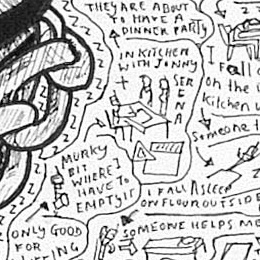 THEY ARE ABOUT
TO HAVE A
DINNER PARTY
IN KITCHEN
WITH JONNY
+
SERENA
I Fall
on the
Kitchen
Someone
MURKY
BIT
WHERE I
HAVE TO
EMPTY IT
I FALL ASLEEP
ON FLOUR OUTSIDE
SOMEONE HELPS ME
ONLY GOOD
FOR